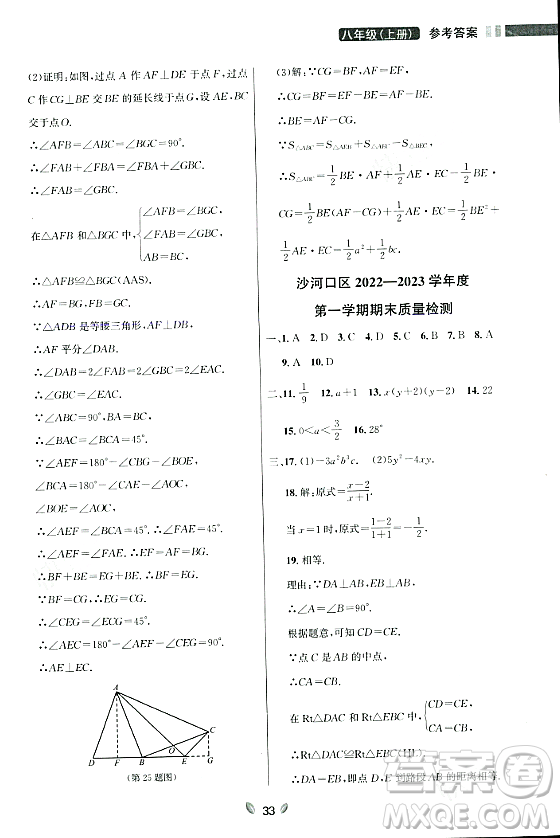 八年级(上册) 参考答案
(2)证明:如图,过点 A 作 AF⊥DE 于点 F,过点
C 作 CG⊥BE 交 BE 的延长线于点 G,设 AE,BC
交于点 O.
∴∠AFB=∠ABC=∠BGC=90°.
∴∠FAB+∠FBA=∠FBA+∠GBC.
∴∠FAB=∠GBC.
在△AFB 和△BGC 中, { ∠FAB=∠GBC, ∠AFB=∠BGC, AB=BC,
∴△AFB≌△BGC(AAS).
∴AF=BG,BF=CG.
∵△ADB 是等腰三角形,AF⊥DB,
∴AF 平分∠DAB.
∴∠DAB=2∠FAB=2∠BAF.
∵∠DAB=2∠EAC,
∴∠BAF=∠EAC.
∵∠ABC=90°,AB=BC,
∴∠BAC=∠BCA=45°.
∵∠AEF=180°-∠EBO-∠BOE,
∠ACB=180°-∠EAC-∠AOC,∠AOC=
∠BOE,
∴∠AEF=∠ACB=45°.
∴∠FAE=∠AEF=45°.∴AF=EF.
∴BF+BE=BE+EG.
∴BF=EG=CG.
∴∠CEG=∠ECG=45°.
∴∠AEC=180°-∠CEG-∠AEF=90°.
∴AE⊥EC.
A
C
D F B E G
(第 25 题图)
(3)解:∵CG=EG=BF,
∴BE+CG=BE+BF=EF.
∵AF=EF,
∴BE=AF-CG.
∵S△ABC=S△ABE+S△AEC-S△BEC,
∴S△ABC=1/2 BE·AF+1/2 AE·EC-1/2 BE·
CG=1/2 BE(AF-CG)+1/2 AE·EC=1/2 BE²+
1/2 AE·EC=1/2 a²+1/2 bc.
沙河口区 2022—2023 学年度
第一学期期末质量检测
一、1. A 2. D 3. C 4. D 5. B 6. C 7. B 8. B
9. A 10. D
二、11. 1/9 12. a+1 13. x(y+2)(y-2) 14. 22
15. 0<a<3/2 16. 28°
三、17. (1)-3a²b³c. (2)5y²-4xy.
18. 解:原式=(x-2)/(x+1).
当 x=1 时,原式=(1-2)/(1+1)=-1/2.
19. 相等.
理由:∵DA⊥AB,EB⊥AB,
∴∠A=∠B=90°.
根据题意,可得 CD=CE.
∵点 C 是 AB 的中点,
∴CA=CB.
在 Rt△DAC 和 Rt△EBC 中, { CD=CE, CA=CB,
∴Rt△DAC≌Rt△EBC(HL).
∴DA=EB,即点 D,E 到路段 AB 的距离相等.
33
作业帮